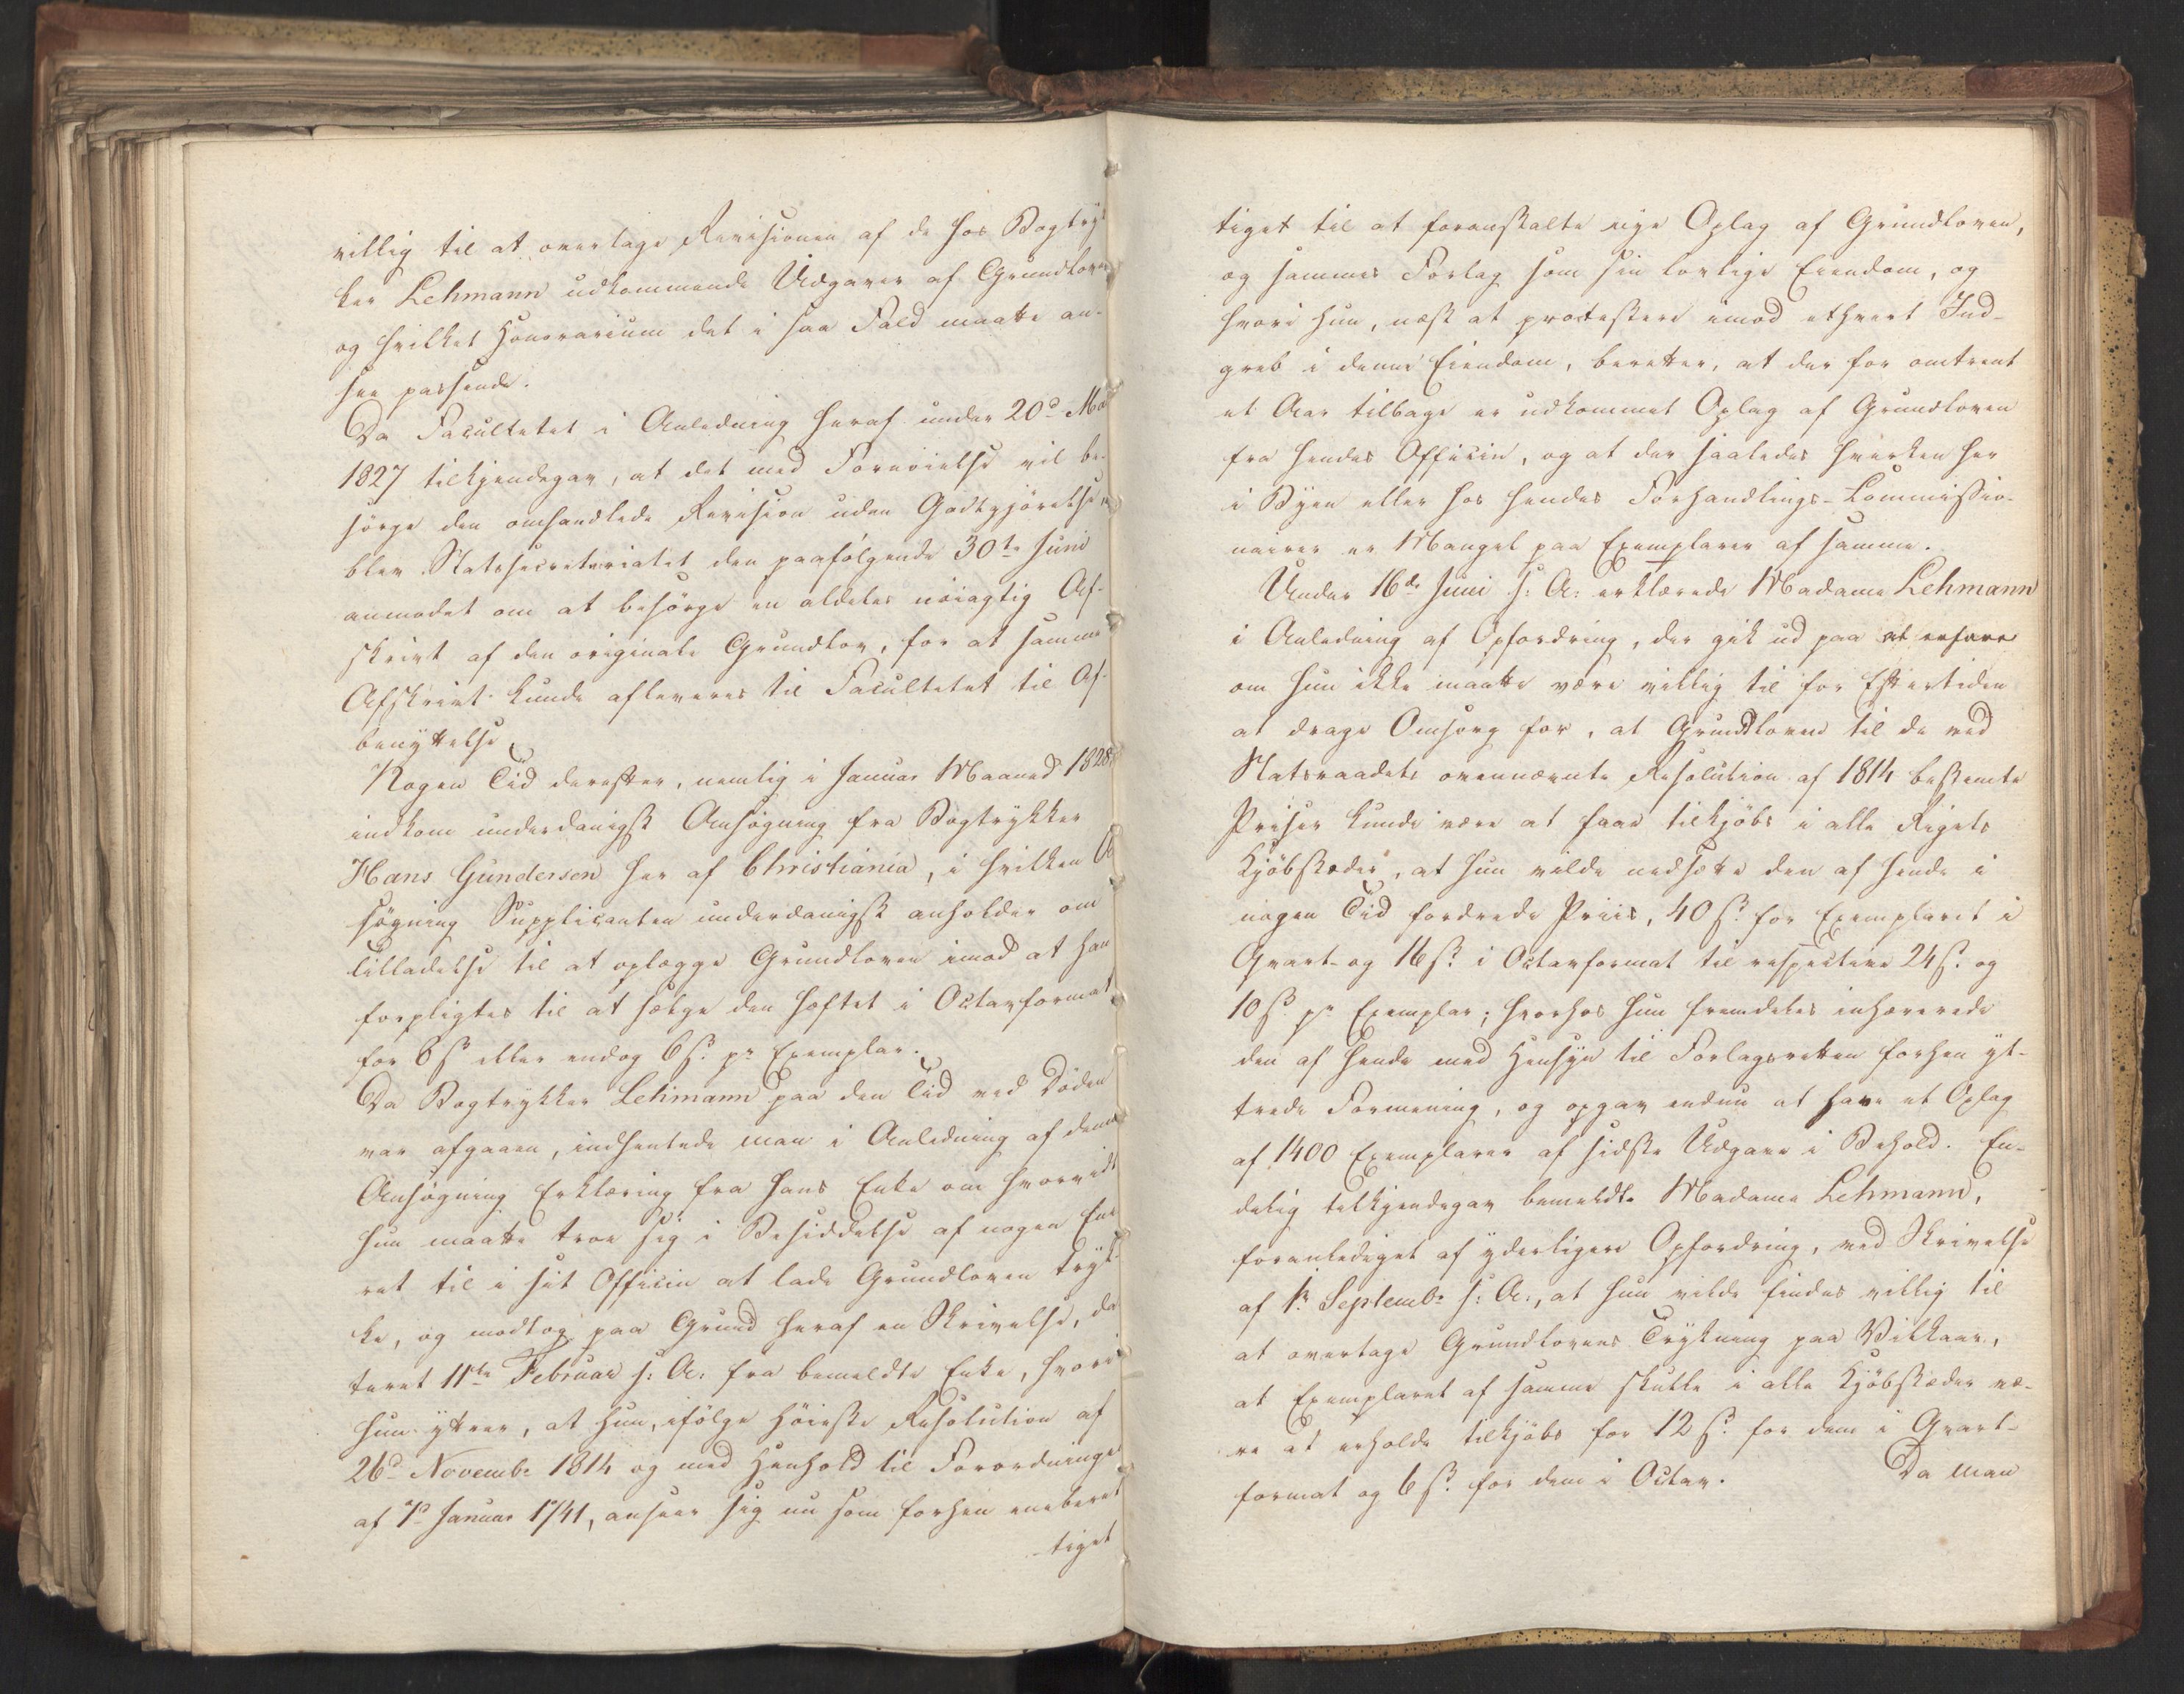 villig til at overtage Revisionen af de hos Bogtryk
ker Lehmann udkommende Udgaver af Grundloven
og hvilket Honorarium det i saa Fald maatte an-
see passende.
Da Facultetet i Anledning heraf under 20d Mai
1827 tilkjendegav, at det med Fornøielse vil be-
sørge den omhandlede Revision uden Godtgjørelse,
blev Statssecretariatet den paafølgende 30te Juni
anmodet om at besørge en aldeles nøiagtig Af-
skrivt af den originale Grundlov, for at samme
Afskrivt kunde afleveres til Facultetet til Af-
benyttelse.
Nogen Tid derefter, nemlig i Januar Maaned 1828
indkom underdanigst Ansøgning fra Bogtrykker
Hans Gundersen her af Christiania, i hvilken An
søgning Supplicanten underdanigst anholder om
Tilladelse til at oplægge Grundloven imod at han
forpligtes til at sælge den hæftet i Octavformat
for 8 s. eller endog 6 s. pr Exemplar.
Da Bogtrykker Lehmann paa den Tid ved Døden
var afgaaen, indhentede man i Anledning af denne
Ansøgning Erklæring fra hans Enke om hvorvidt
hun maatte troe sig i Besiddelse af nogen Ene
ret til i sit Officin at lade Grundloven tryk
ke, og modtog paa Grund heraf en Skrivelse, da
teret 11te Februar s: A: fra bemeldte Enke, hvori
hun yttrer, at hun, ifølge høieste Resolution af
26d Novembr 1814 og med Henhold til Forordningen
af 7d Januar 1741, anseer sig nu som forhen eneberet
tiget
tiget til at foranstalte nye Oplag af Grundloven,
og sammes Forlag som sin lovlige Eiendom, og
hvori hun, næst at protestere imod ethvert Ind-
greb i denne Eiendom, beretter, at der for omtrent
et Aar tilbage er udkommet Oplag af Grundloven
fra hendes Officin, og at der saaledes hverken her
i Byen eller hos hendes Forhandlings-Commissio-
nairer er Mangel paa Exemplarer af samme.
Under 16de Juni s: A: erklærede Madame Lehmann
i Anledning af Opfordring, der gik ud paa at erfare
om hun ikke maatte være villig til for Eftertiden
at drage Omsorg for, at Grundloven til de ved
Statsraadets ovennævnte Resolution af 1814 bestemte
Priser kunde være at faae tilkjøbs i alle Rigets
Kjøbstæder, at hun vilde nedsætte den af hende i
nogen Tid fordrede Priis, 40 s. for Exemplaret i
Qvart- og 16 s. i Octavformat til respective 24 s. og
10 s. pr Exemplar; hvorhos hun fremdeles inhærerede
den af hende med Hensyn til Forlagsretten forhen yt-
trede Formening, og opgav endnu at have et Oplag
af 1400 Exemplarer af sidste Udgave i Behold. En-
delig tilkjendegav bemeldte Madame Lehmann,
foranlediget af yderligere Opfordring, ved Skrivelse
af 1ste Septembr s: A:, at hun vilde findes villig til
at overtage Grundlovens Trykning paa Vilkaar,
at Exemplaret af samme skulle i alle Kjøbstæder væ-
re at erholde tilkjøbs for 12 s. for dem i Qvart-
format og 6 s. for dem i Octav.
Da man